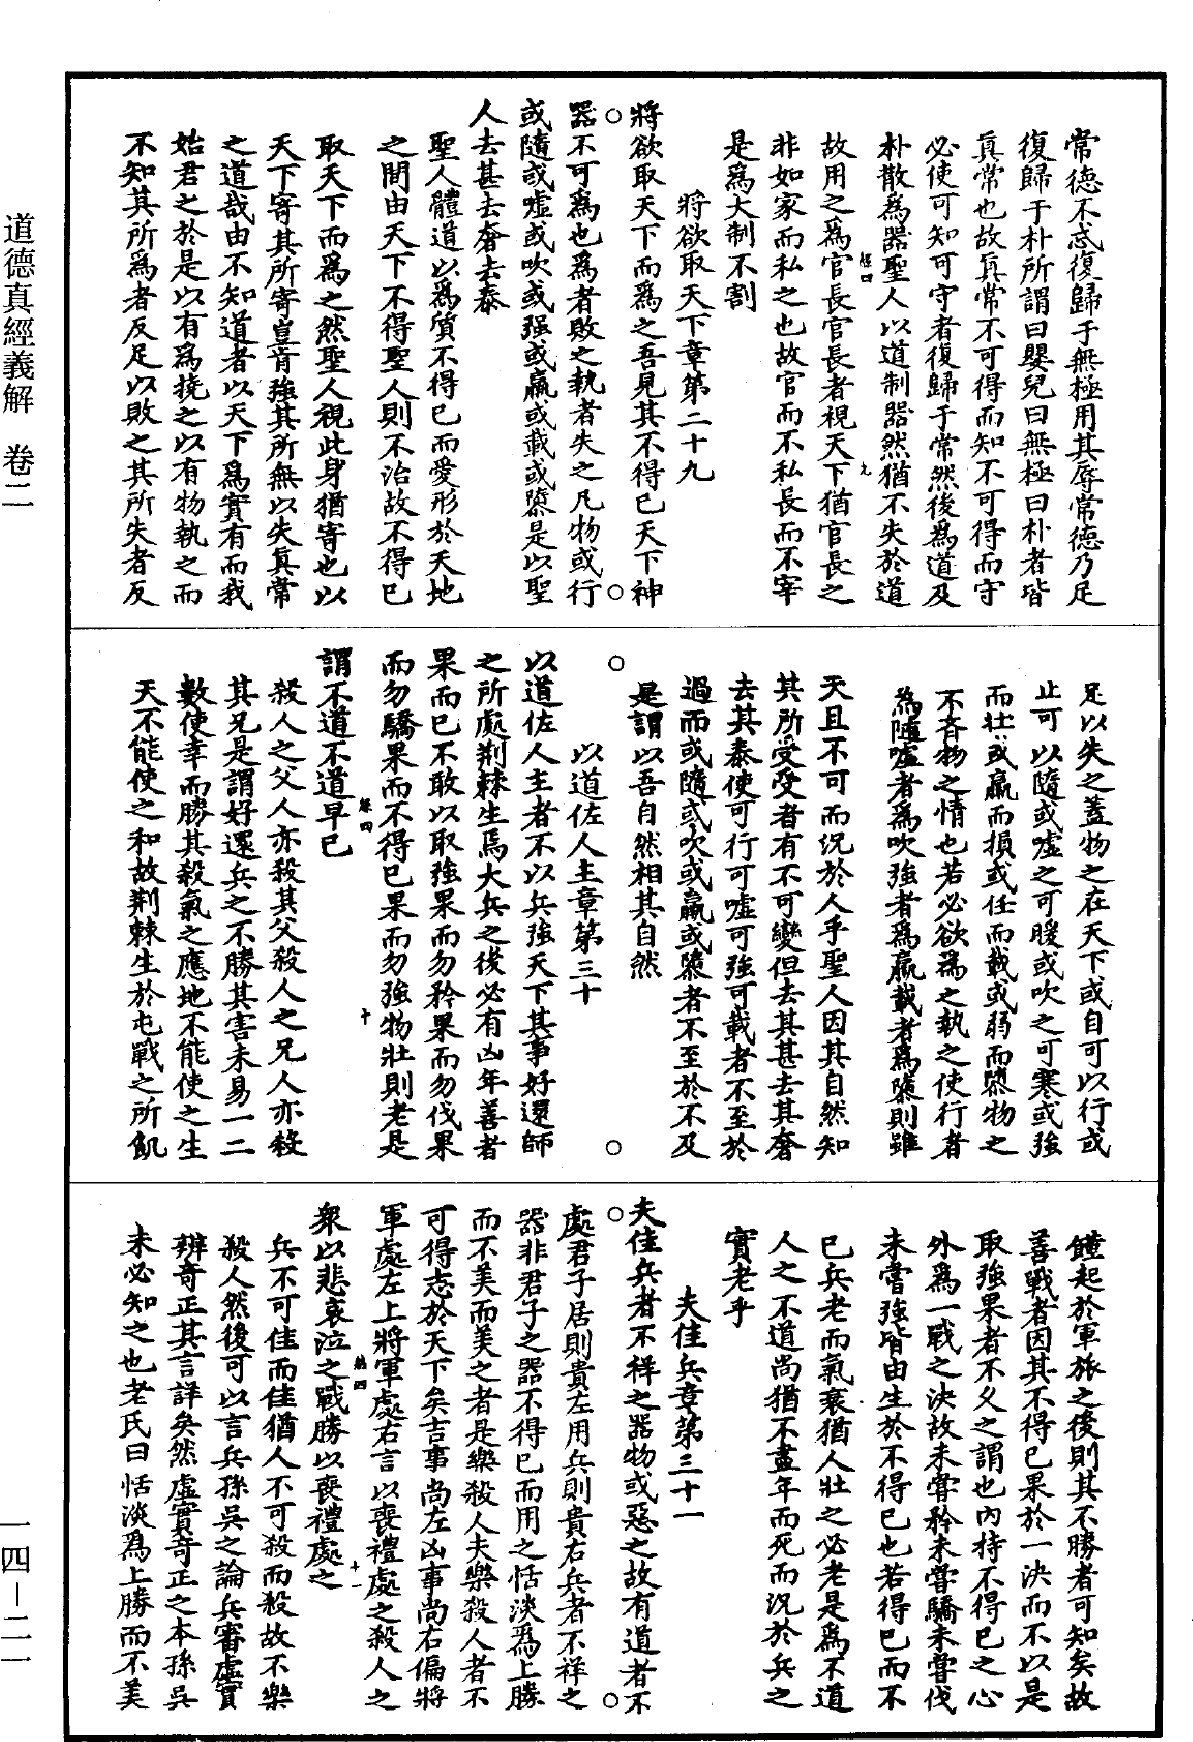 常德不忒復歸于無極用其辱常德乃足
復歸于朴所謂曰嬰兒曰無極曰朴者皆
真常也故真常不可得而知不可得而守
必使可知可守者復歸于常然後為道及
朴散為器聖人以道制器然猶不失於道
故用之為官長官長者視天下猶官長之
非如家而私之也故官而不私長而不宰
是為大制不割
將欲取天下章第二十九
將欲取天下而為之吾見其不得已天下神
器不可為也為者敗之執者失之凡物或行
或隨或噓或吹或强或羸或載或隳是以聖
人去甚去奢去泰
聖人體道以為質不得已而愛形於天地
之間由天下不得聖人則不治故不得已
取天下而為之然聖人視此身猶寄也以
天下寄其所寄豈肯強其所無以失真常
之道哉由不知道者以天下為實有而我
始君之於是以有為撓之以有物執之而
不知其所為者反足以敗之其所失者反
足以失之蓋物之在天下或自可以行或
止可以隨或噓之可暖或吹之可寒或強
而壯或羸而損或任而載或弱而隳物之
不齊物之情也若必欲為之執之使行者
為隨噓者為吹強者為羸載者為隳則雖
天且不可而況於人乎聖人因其自然知
其所受受者有不可變但去其甚去其奢
去其泰使可行可噓可強可載者不至於
過而或隨或吹或羸或隳者不至於不及
是謂以吾自然相其自然
以道佐人主章第三十
以道佐人主者不以兵強天下其事好還師
之所處荆棘生焉大兵之後必有凶年善者
果而已不敢以取強果而勿矜果而勿伐果
而勿驕果而不得已果而勿強物壯則老是
謂不道不道早已
殺人之父人亦殺其父殺人之兄人亦殺
其兄是謂好還兵之不勝其害未易一二
數使幸而勝其殺氣之應地不能使之生
天不能使之和故荆棘生於屯戰之所飢
饉起於軍旅之後則其不勝者可知矣故
善戰者因其不得已果於一決而不以是
取強果者不久之謂也內持不得已之心
外為一戰之決故未嘗矜未嘗驕未嘗伐
未嘗強皆由生於不得已也若得已而不
已兵老而氣衰猶人壯之必老是為不道
人之不道尚猶不盡年而死而況於兵之
實老乎
夫佳兵章第三十一
夫佳兵者不祥之器物或惡之故有道者不
處君子居則貴左用兵則貴右兵者不祥之
器非君子之器不得已而用之恬淡為上勝
而不美而美之者是樂殺人夫樂殺人者不
可得志於天下矣吉事尚左凶事尚右偏將
軍處左上將軍處右言以喪禮處之殺人之
衆以悲哀泣之戰勝以喪禮處之
兵不可佳而佳猶人不可殺而殺故不樂
殺人然後可以言兵孫吳之論兵審虛實
辨奇正其言詳矣然虛實奇正之本孫吳
未必知之也老氏曰恬淡為上勝而不美
道德真經義解　卷二
一四—二一